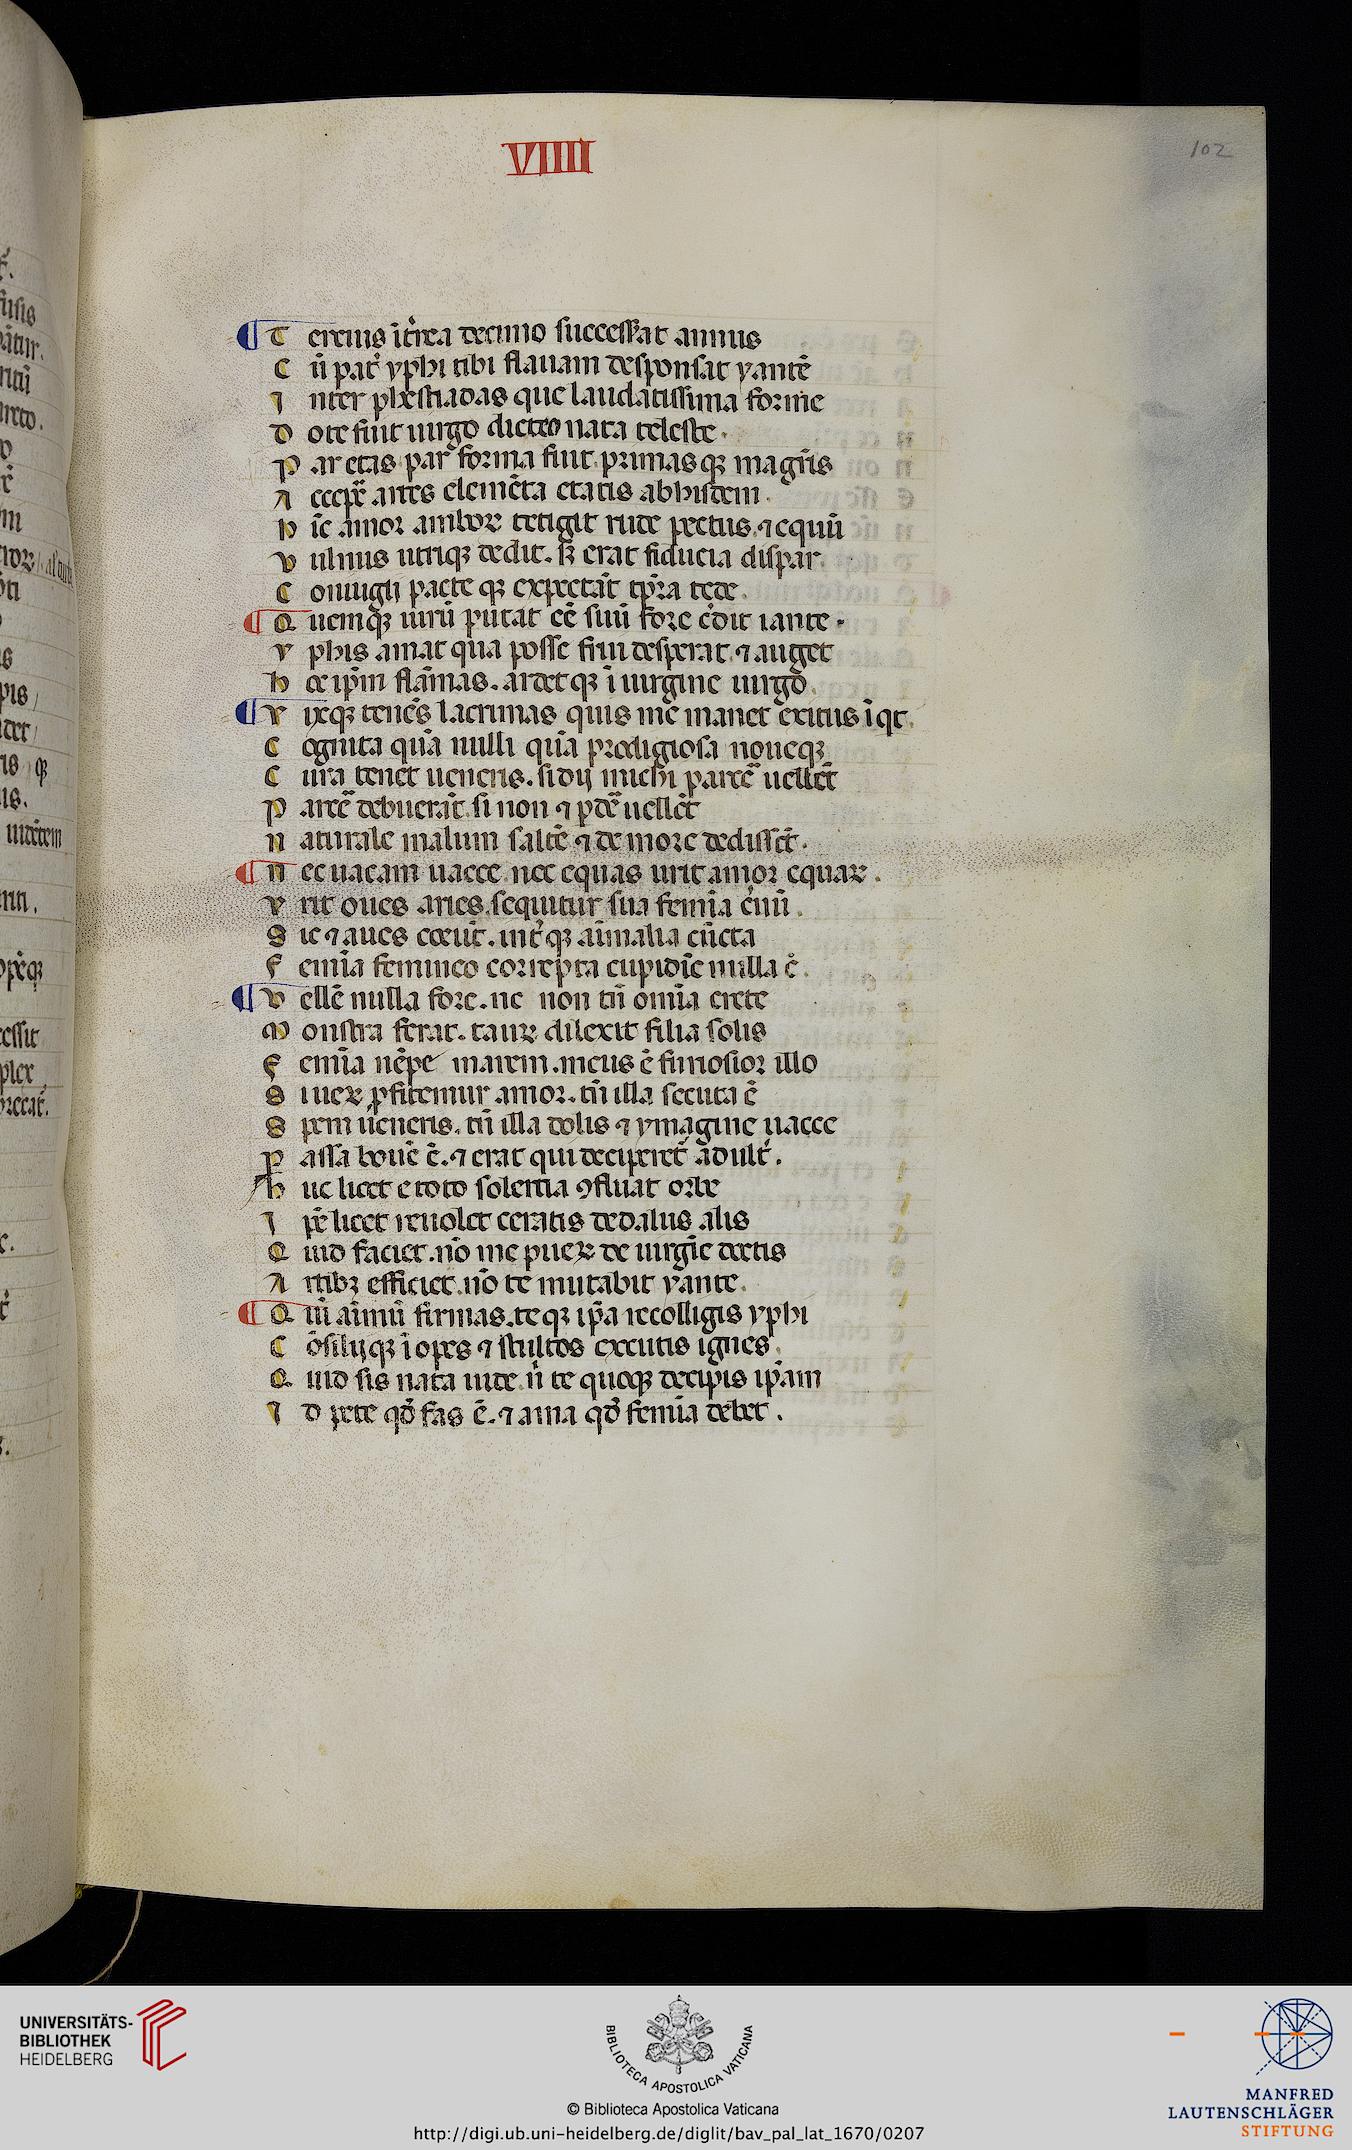 VIIII
102
T ercius īt̄rea decimo successerat annus
C ū pat̄ yphi tibi flauam desponsat yantē
I nter phestiadas que laudatissima forme
D ote fuit uirgo dicteo nata teleste.
P ar etas par forma fuit. primasqꝫ magrīs
A ccepē artes elemēta etatis abhisdem.
h īc amor amboꝝ tetigit rude pectus. ⁊ equū
V ulnus utriqꝫ dedit. sꝫ erat fiducia dispar.
C oniugii pacte qꝫ expectāt tp̄ra tede.
Q uemqꝫ uirū putat eē suū fore c̄dit iante.
Y phis amat qua posse frui desperat. ⁊ auget
h oc ip̄m flāmas. ardetqꝫ ī uirgine uirgo.
V ixqꝫ tenēs lacrimas quis me manet exitus īqt.
C ognita quā nulli quā prodigiosa noueqꝫ
C ura tenet ueneris. si dij michi parcē uellēt
P arcē debuerāt. si non ⁊ ꝑdē uellēt
N aturale malum saltē ⁊ de more dedissēt.
N ec uacam uacce. nec equas urit amor equaꝝ.
V rit oues aries. sequitur sua femīa c̄uū.
S ic ⁊ aues coeūt. int̄qꝫ aīmalia cūcta
F emīa femineo correpta cupidīe nulla ē.
V ellē nulla fore. ne non tn̄ omīa crete
M onstra ferat. tauꝝ dilexit filia solis
F emīa nēpe marem. meus ē furiosior illo
S i ueꝝ ꝓfitemur amor. tn̄ illa secuta ē
S pem ueneris. tn̄ illa dolis ⁊ ymagine uacce
P assa bouē ē. ⁊ erat qui deciperet adult̄.
h uc licet e toto solertia ꝯfluat orbe
I pē licet reuolet ceratis dedalus alis
Q uid faciet. nō me pueꝝ de uirgīe doctis
A rtibꝫ efficiet. nō te mutabit yante.
Q ūi aīmū firmas. teqꝫ ip̄a recolligis yphi
C ōsiliiqꝫ īopes ⁊ stultos excutis ignes.
Q uid sis nata uide. n̄ te quoqꝫ decipis ip̄am
I d pete qd̄ fas ē. ⁊ ama qd̄ femīa debet.
UNIVERSITÄTS-
BIBLIOTHEK
HEIDELBERG
BIBLIOTECA APOSTOLICA VATICANA
© Biblioteca Apostolica Vaticana
http://digi.ub.uni-heidelberg.de/diglit/bav_pal_lat_1670/0207
MANFRED
LAUTENSCHLÄGER
STIFTUNG